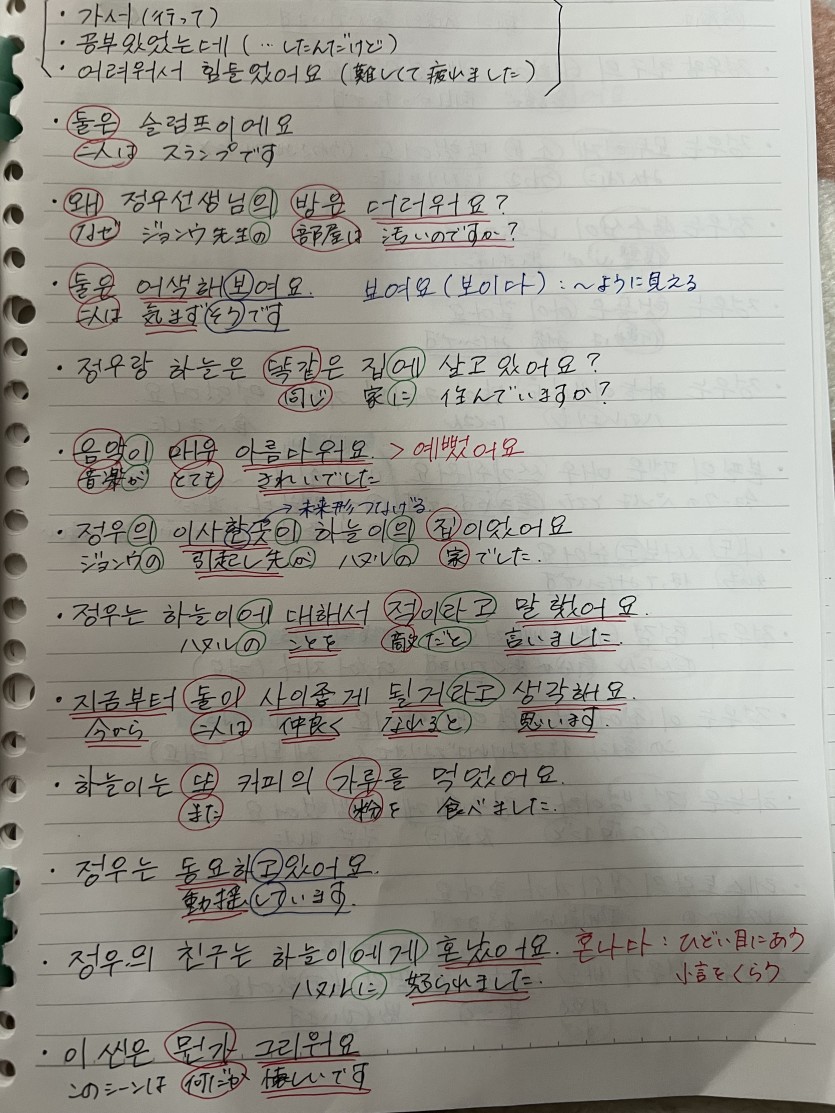 ・가서 (行って)
・공부 있었는데 (…したんだけど)
・어려워서 힘들었어요 (難しくて疲れました)
・둘은 슬럼프이에요
二人は スランプです
・왜 정우선생님의 방은 더러워요?
なぜ ジョンウ先生の 部屋は 汚いのですか?
・둘은 어색해보여요. 보여요(보이다):〜ように見える
二人は 気まずそうです
・정우랑 하늘은 똑같은 집에 살고 있어요?
同じ 家に 住んでいますか?
・음악이 매우 아름다워요. > 예뻤어요
音楽が とても きれいでした
→未来形つなげる
・정우의 이사할곳이 하늘이의 집이었어요
ジョンウの 引起し先が ハヌルの 家でした.
・정우는 하늘이에 대해서 적이라고 말했어요.
ハヌルの ことを 敵だと 言いました.
・지금부터 둘이 사이좋게 될거라고 생각해요.
今から 二人は 仲良く なれると 思います.
・하늘이는 또 커피의 가루를 먹었어요.
また 粉を 食べました.
・정우는 동요하고있어요.
動揺しています.
・정우의 친구는 하늘이에게 혼났어요. 혼나다:ひどい目にあう
ハヌルに 怒られました. 小言をくらう
・이 씬은 뭔가 그리워요
このシーンは 何だか 悔しいです